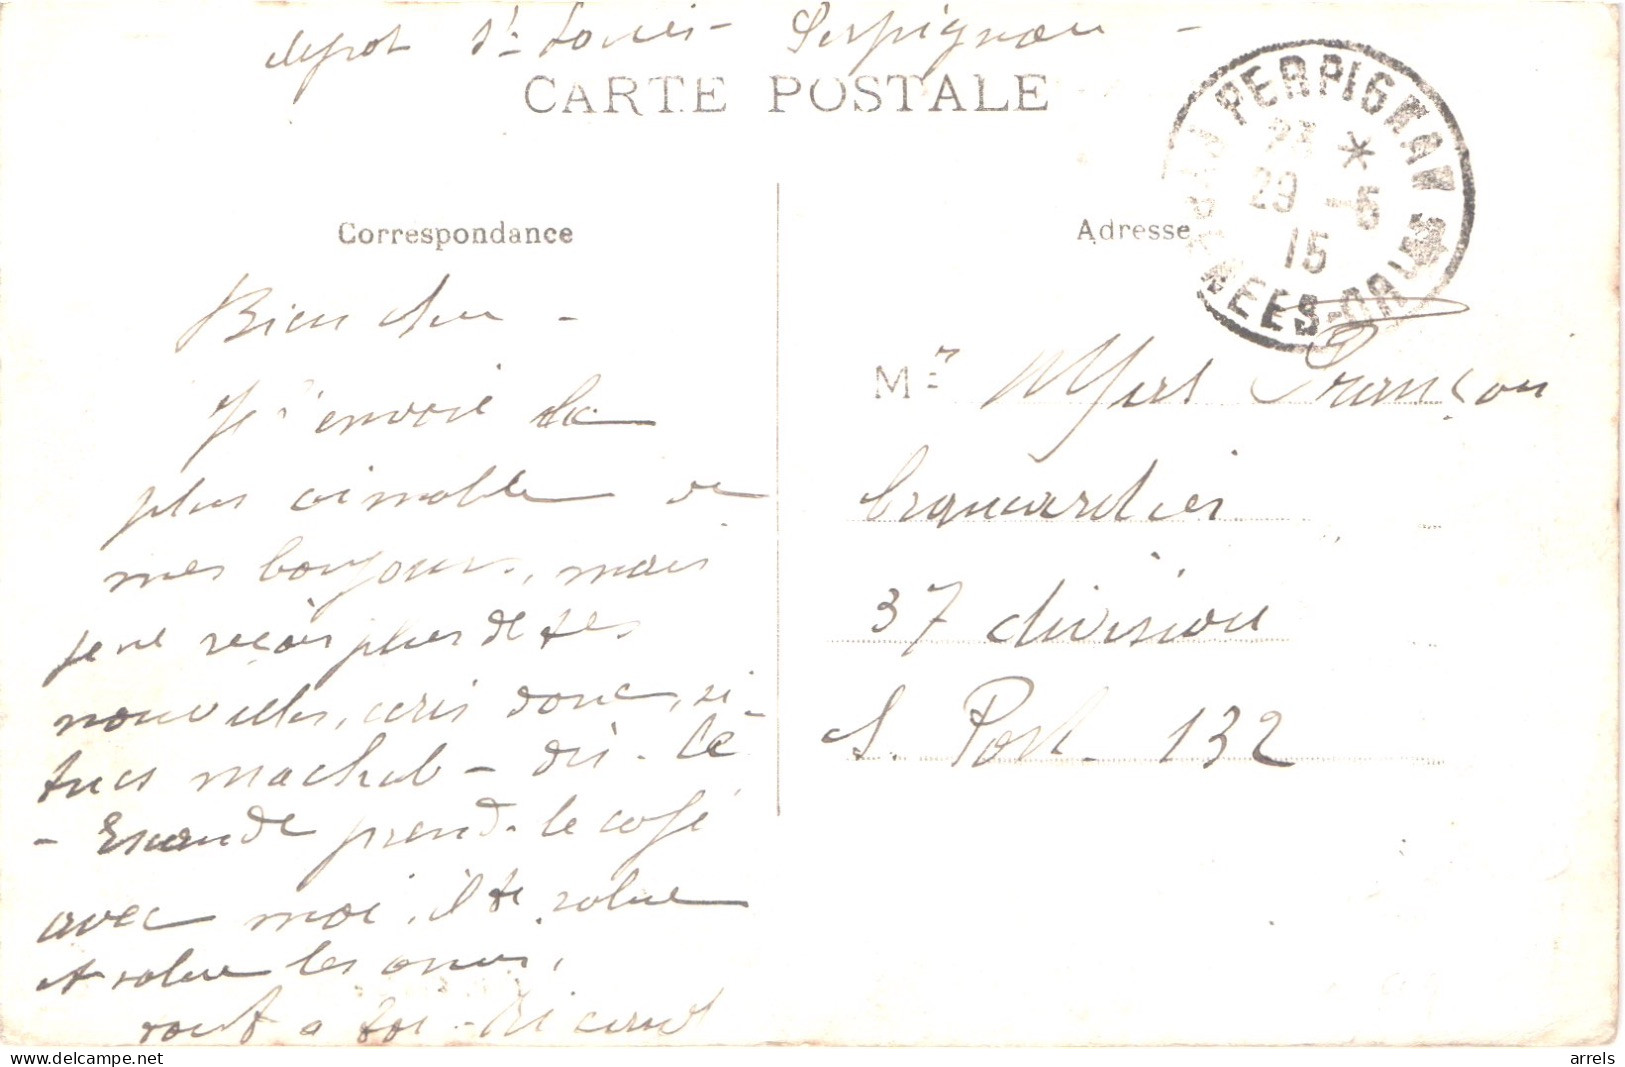 depot St Louis - Perpignan -
CARTE POSTALE
PERPIGNAN
23 *
29 -5
15
Correspondance
Adresse
Bien cher -
Je t'envoie la
plus aimable de
mes bonjours, mais
je ne reçois plus de tes
nouvelles, écris donc, si
tu es - dis-le
- prend le café
avec moi, il te salue
et salue les amis,
tout a toi - Ricard
Mr François
Brancardier
37 division
S. Post - 132
https://www.delcampe.net
arrels